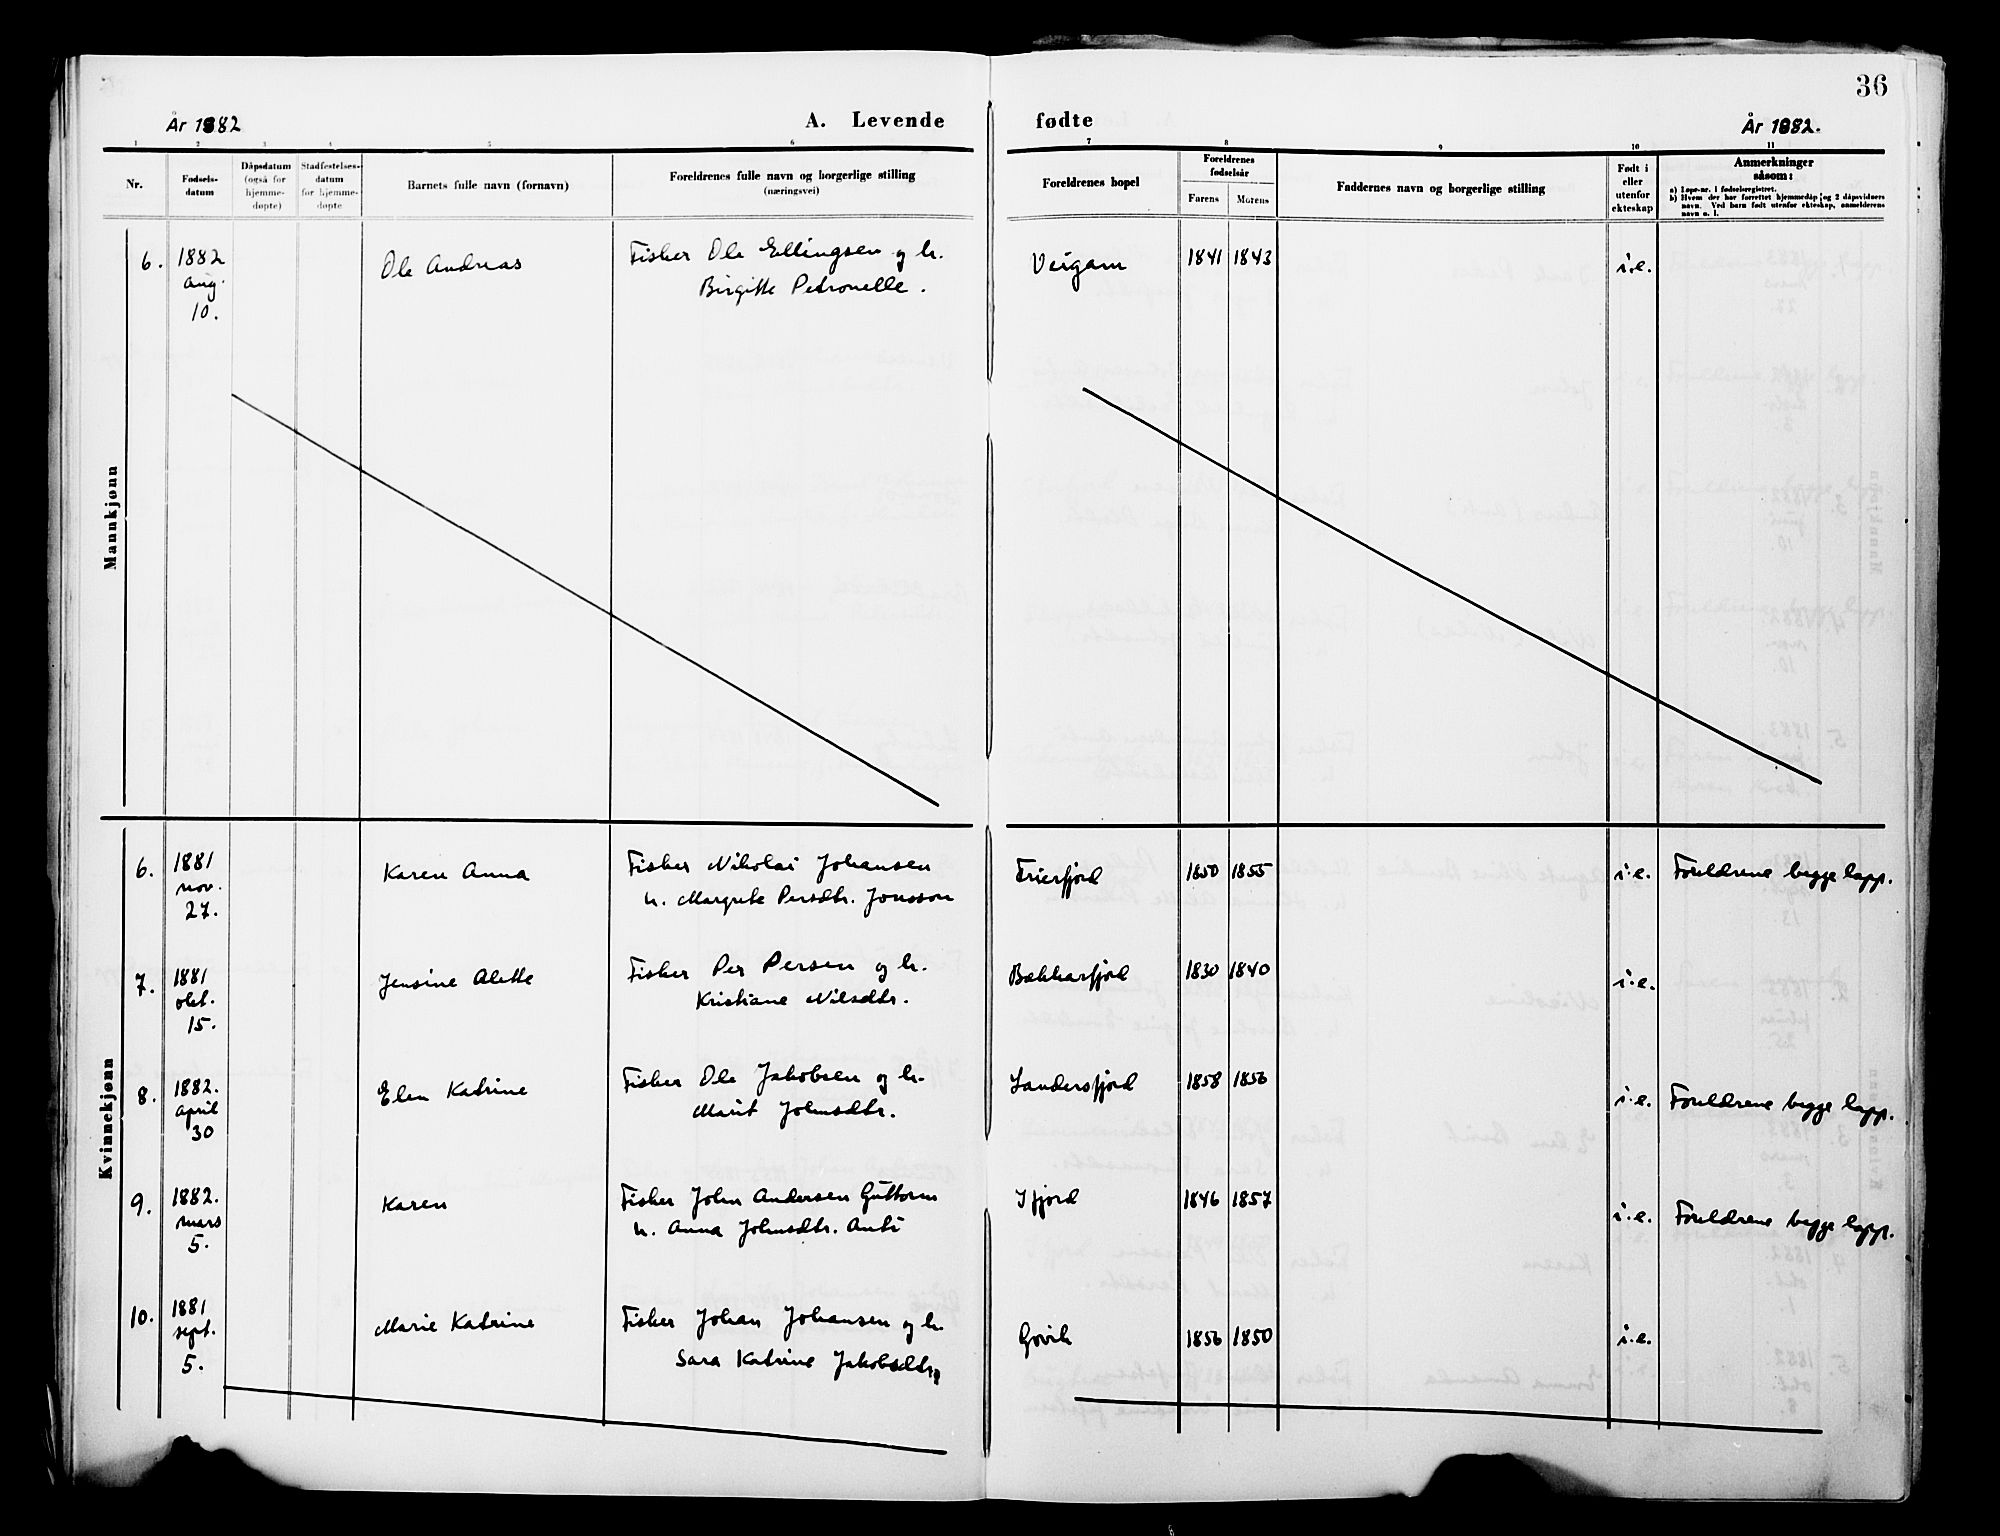 36
År 1882
A. Levende fødte
År 1882.
1 2 3 4 5 6 7 8 9 10 11
Nr.
Fødsels-
datum
Dåpsdatum
(også for
hjemme-
døpte)
Stadfestelses-
datum
for hjemme-
døpte
Barnets fulle navn (fornavn)
Foreldrenes fulle navn og borgerlige stilling
(næringsvei)
Foreldrenes bopel
Foreldrenes
fødselsår
Farens Morens
Faddernes navn og borgerlige stilling
Født i
eller
utenfor
ekteskap
Anmerkninger
såsom:
a) Løpe-nr. i fødselsregistret.
b) Hvem der har forrettet hjemmedåp og 2 dåpsvidners
navn. Ved barn født utenfor ekteskap, anmelderens
navn o. l.
Mannkjønn
6. 1882 Ole Andreas Fisker Ole Ellingsen og h. Veigam 1841 1843 i.e.
aug. Birgitte Petronelle.
10.
Kvinnekjønn
6. 1881 Karen Anna Fisker Nikolai Johansen Frierfjord 1850 1855 i.e. Foreldrene begge lapp.
nov. h. Margrete Persdtr. Jonsson
27.
7. 1881 Jensine Alette Fisker Per Persen og h. Bekkarfjord 1830 1840 i.e.
okt. Kristiane Nilsdtr.
15.
8. 1882. Elen Katrine Fisker Ole Jakobsen og h. Landersfjord 1858 1856 i.e. Foreldrene begge lapp.
april Marit Johnsdtr.
30
9. 1882. Karen Fisker John Andersen Guttorm Ifjord 1846 1857 i.e. Foreldrene begge lapp.
mars h. Anna Johnsdtr. Anti
5.
10. 1881 Marie Katrine Fisker Johan Johansen og h. Govik 1856 1850 i.e.
sept. Sara Katrine Jakobsdtr.
5.